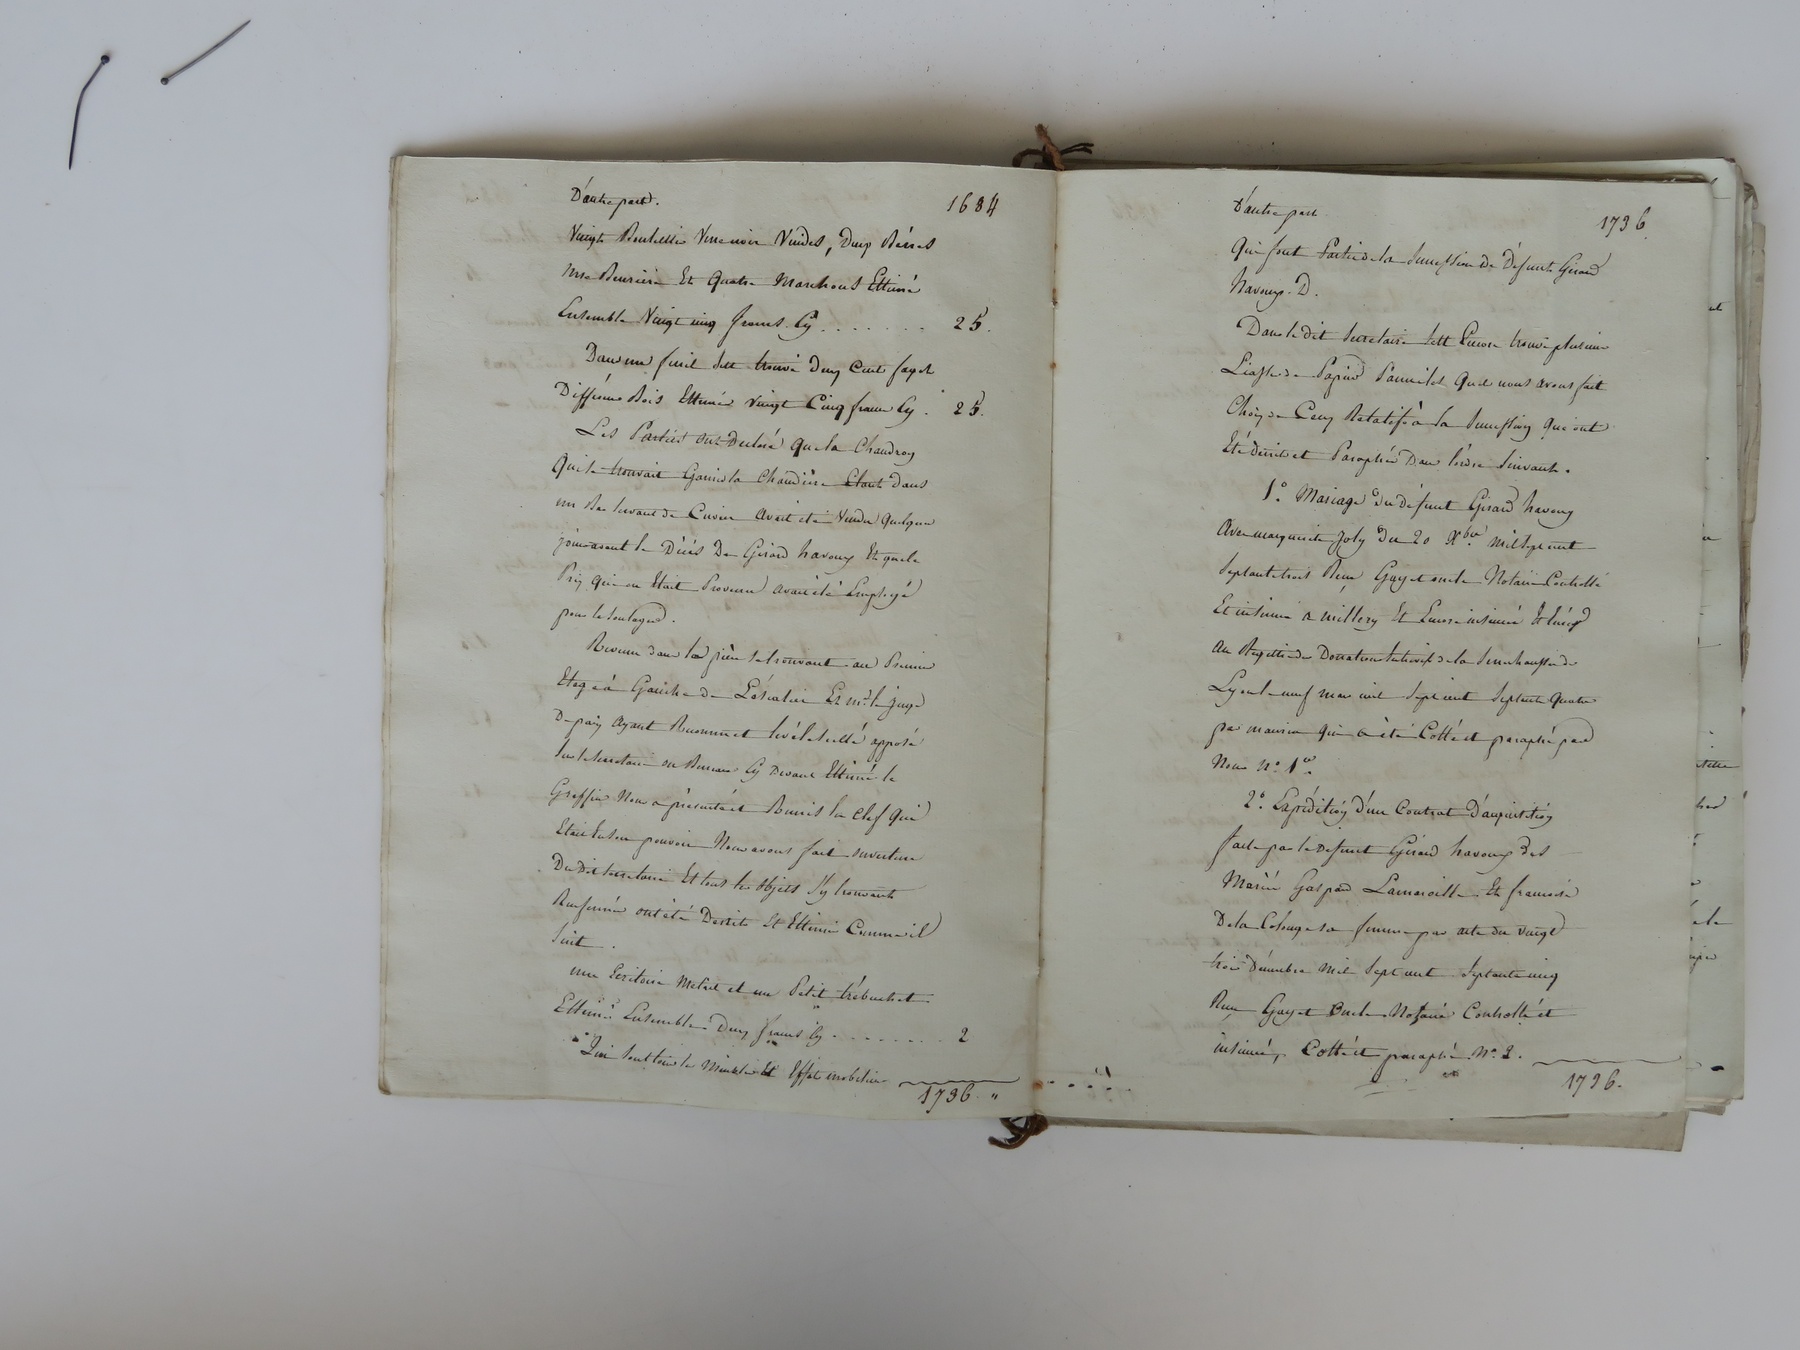 D'autre part. 1684
Vingt Bouteilles Verre noir Vuides, Deux Bènes
une Beurrière Et Quatre Marchous Ettimé
Ensemble Vingt cinq francs Cy . . . . . . . 25.
Dans un fenil sest trouvé Deux Cent fagot
Différens Bois Ettimés vingt Cinq francs Cy . 25.
Les Parties ont Declaré Que la Chaudron
Qui se trouvait Garnir la Chaudière Etant dans
un Bas servant de Cuvier Avait été Vendu quelques
jours avant le Décès De Girard havoux Et que le
Prix qui en Etait Provenu avait été Employé
pour le soulager.
Revenu dans la pièce se trouvant au Premier
Etage à Gauche de L'éscalier Et mr. le juge
De paix ayant Reconnu et levé le scellé apposé
sur le secretaire ou Bureau Cy Devant Ettimé le
Greffier Nous a présenté et Remis la clef qui
Etait En son pouvoir Nous avons fait ouverture
Du Dit secretaire Et tous les objets s'y trouvants
Renfermés ont été Décrits Et Ettimés Comme il
suit .
une Ecritoire Métail et un Petit trébuchet
Ettimés Ensemble Deux francs Cy . . . . . . . . 2
Qui sont tous les Meubles Et Effets mobiliers
1736. "
D'autre part 1736.
Qui font Partie de la succession De Défunt Girard
havoux. D.
Dans le dit secretaire sest Encore trouvé plusieurs
Liasse de Papiers Parmi les Quels nous avons fait
Choix de Ceux Relatifs à la succession qui ont
Eté décrit et Paraphés Dans l'ordre suivant.
1°. Mariage du défunt Girard havoux
Avec marguerite joly du 20 Xbre mil sept cent
septante trois Reçu Guyet oncle Notaire Controllé
Et insinué a millery Et Encore insinué
au Registre des Donations de la Senechaussée de
Lyon le neuf mars mil sept cent septante quatre
par qui a été Cotté et paraphé par
Nous N°. 1er.
2°. Expédition d'un Contrat D'acquisition
faite par le Defunt Girard havoux des
Mariés Gaspard Et francoise
De la sa femme par acte du vingt
trois Décembre mil sept cent septante cinq
Reçu Guyet oncle Notaire Controllé et
insinué, Cotté et paraphé N°. 2.
1736.